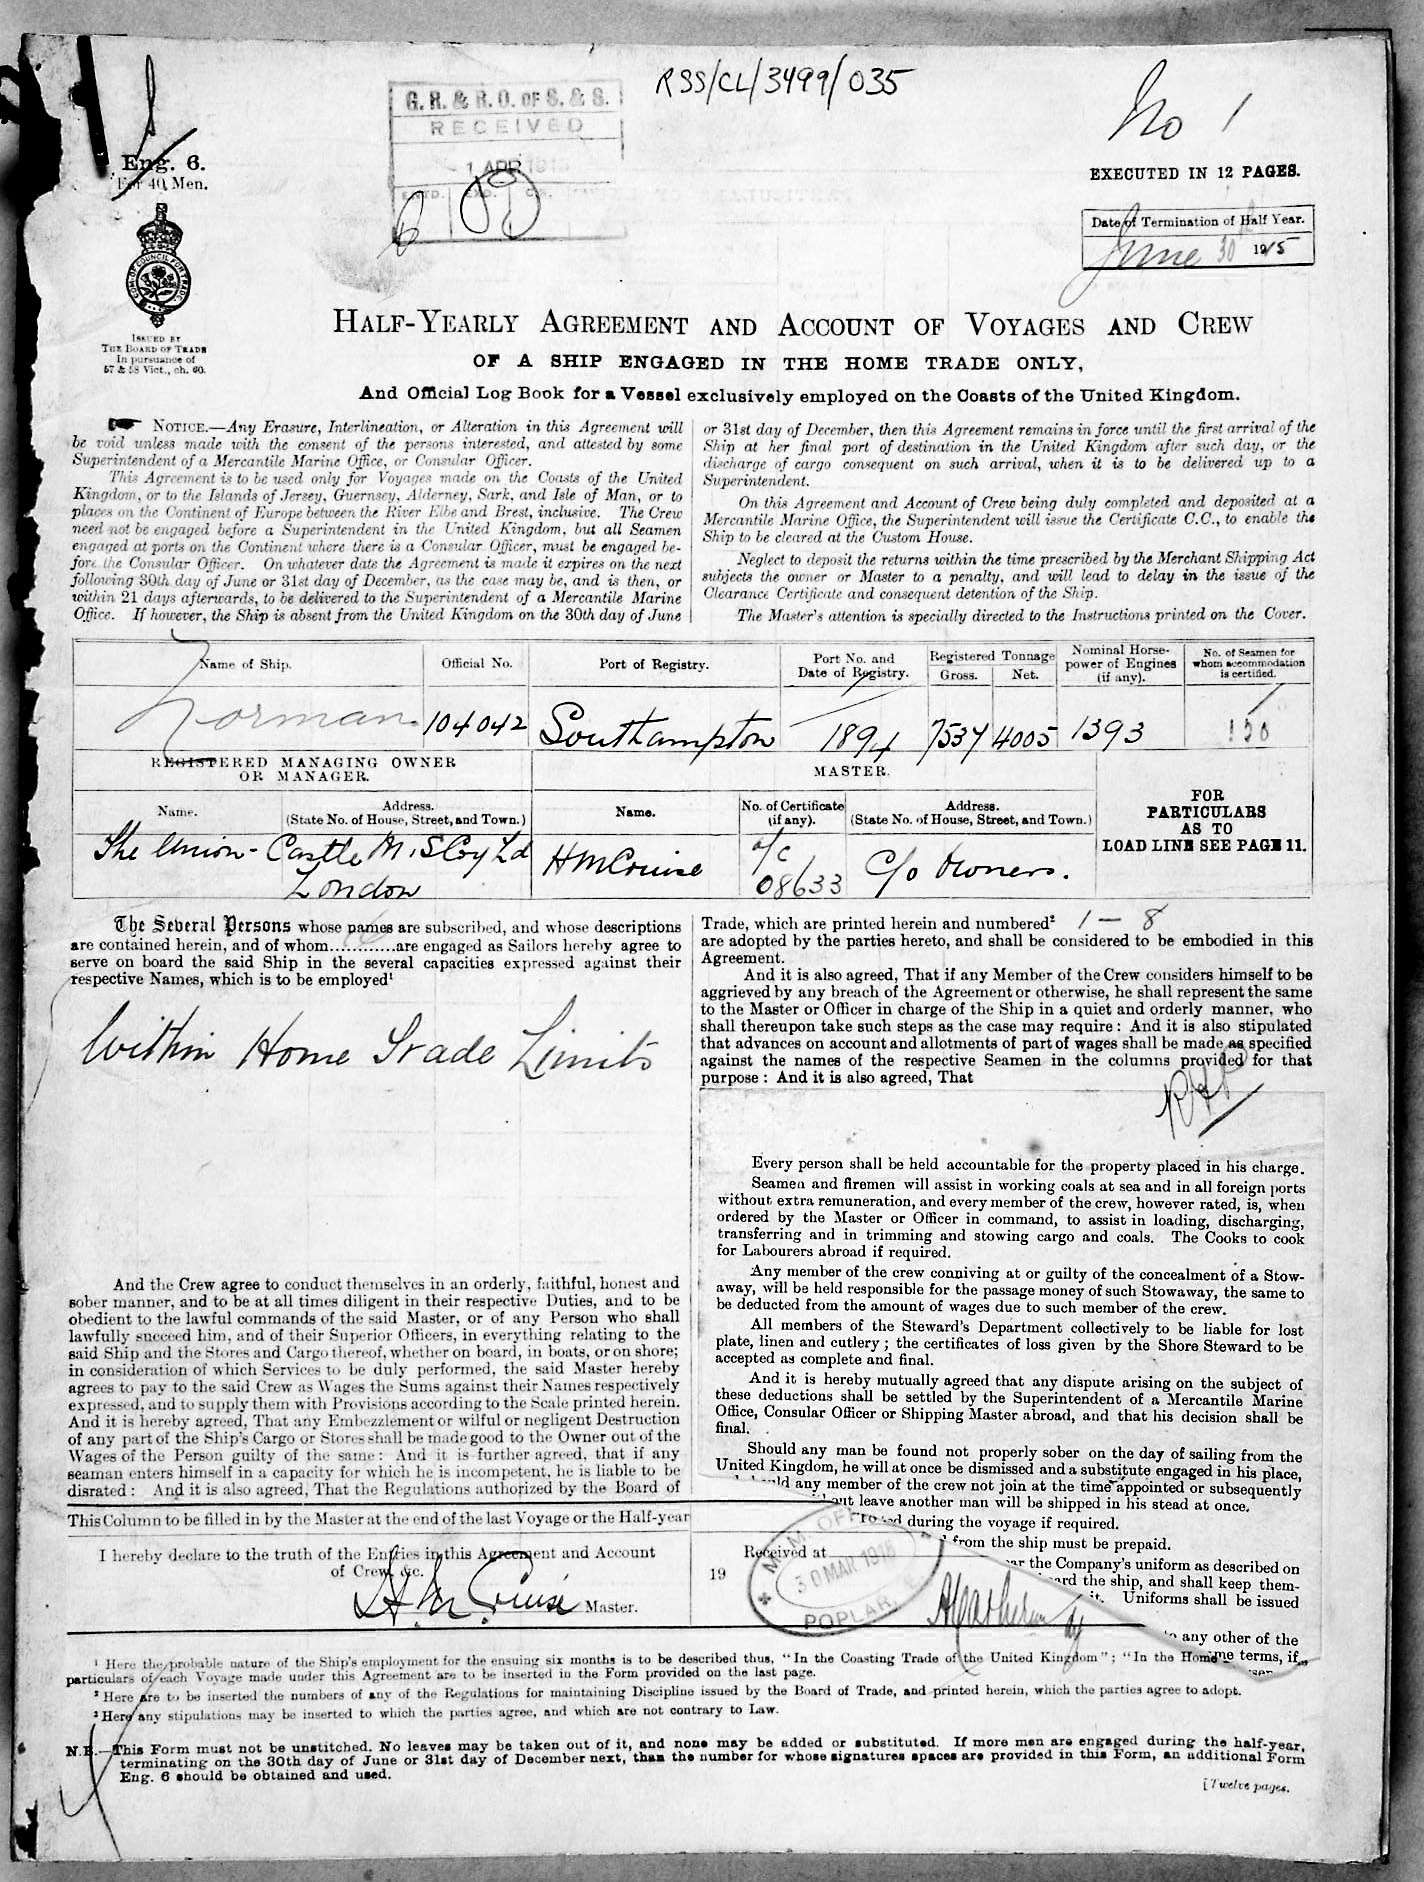 RSS/CL/3499/035
No 1
G. R. & R. O. OF S. & S.
RECEIVED
1 APR 1915
Eng. 6.
For 40 Men.
EXECUTED IN 12 PAGES.
Date of Termination of Half Year.
June 30th 1915
ISSUED BY
THE BOARD OF TRADE
In pursuance of
57 & 58 Vict., ch. 60.
HALF-YEARLY AGREEMENT AND ACCOUNT OF VOYAGES AND CREW
OF A SHIP ENGAGED IN THE HOME TRADE ONLY,
And Official Log Book for a Vessel exclusively employed on the Coasts of the United Kingdom.
NOTICE.—Any Erasure, Interlineation, or Alteration in this Agreement will
be void unless made with the consent of the persons interested, and attested by some
Superintendent of a Mercantile Marine Office, or Consular Officer.
This Agreement is to be used only for Voyages made on the Coasts of the United
Kingdom, or to the Islands of Jersey, Guernsey, Alderney, Sark, and Isle of Man, or to
places on the Continent of Europe between the River Elbe and Brest, inclusive. The Crew
need not be engaged before a Superintendent in the United Kingdom, but all Seamen
engaged at ports on the Continent where there is a Consular Officer, must be engaged be-
fore the Consular Officer. On whatever date the Agreement is made it expires on the next
following 30th day of June or 31st day of December, as the case may be, and is then, or
within 21 days afterwards, to be delivered to the Superintendent of a Mercantile Marine
Office. If however, the Ship is absent from the United Kingdom on the 30th day of June
or 31st day of December, then this Agreement remains in force until the first arrival of the
Ship at her final port of destination in the United Kingdom after such day, or the
discharge of cargo consequent on such arrival, when it is to be delivered up to a
Superintendent.
On this Agreement and Account of Crew being duly completed and deposited at a
Mercantile Marine Office, the Superintendent will issue the Certificate C.C., to enable the
Ship to be cleared at the Custom House.
Neglect to deposit the returns within the time prescribed by the Merchant Shipping Act
subjects the owner or Master to a penalty, and will lead to delay in the issue of the
Clearance Certificate and consequent detention of the Ship.
The Master's attention is specially directed to the Instructions printed on the Cover.
Name of Ship. Official No. Port of Registry. Port No. and Date of Registry. Registered Tonnage Gross. Net. Nominal Horse-power of Engines (if any). No. of Seamen for whom accommodation is certified.
Norman 104042 Southampton 1894 7537 4005 1393 120
REGISTERED MANAGING OWNER
OR MANAGER.
MASTER.
Name. Address. (State No. of House, Street, and Town.) Name. No. of Certificate (if any). Address. (State No. of House, Street, and Town.)
FOR
PARTICULARS
AS TO
LOAD LINE SEE PAGE 11.
The Union-Castle M. S Coy Ld
London
H M Cruise
o/c
08633
C/o Owners.
The Several Persons whose names are subscribed, and whose descriptions
are contained herein, and of whom............are engaged as Sailors hereby agree to
serve on board the said Ship in the several capacities expressed against their
respective Names, which is to be employed¹
Within Home Trade Limits
And the Crew agree to conduct themselves in an orderly, faithful, honest and
sober manner, and to be at all times diligent in their respective Duties, and to be
obedient to the lawful commands of the said Master, or of any Person who shall
lawfully succeed him, and of their Superior Officers, in everything relating to the
said Ship and the Stores and Cargo thereof, whether on board, in boats, or on shore;
in consideration of which Services to be duly performed, the said Master hereby
agrees to pay to the said Crew as Wages the Sums against their Names respectively
expressed, and to supply them with Provisions according to the Scale printed herein.
And it is hereby agreed, That any Embezzlement or wilful or negligent Destruction
of any part of the Ship's Cargo or Stores shall be made good to the Owner out of the
Wages of the Person guilty of the same: And it is further agreed, that if any
seaman enters himself in a capacity for which he is incompetent, he is liable to be
disrated: And it is also agreed, That the Regulations authorized by the Board of
Trade, which are printed herein and numbered² 1 – 8
are adopted by the parties hereto, and shall be considered to be embodied in this
Agreement.
And it is also agreed, That if any Member of the Crew considers himself to be
aggrieved by any breach of the Agreement or otherwise, he shall represent the same
to the Master or Officer in charge of the Ship in a quiet and orderly manner, who
shall thereupon take such steps as the case may require: And it is also stipulated
that advances on account and allotments of part of wages shall be made as specified
against the names of the respective Seamen in the columns provided for that
purpose: And it is also agreed, That
Every person shall be held accountable for the property placed in his charge.
Seamen and firemen will assist in working coals at sea and in all foreign ports
without extra remuneration, and every member of the crew, however rated, is, when
ordered by the Master or Officer in command, to assist in loading, discharging,
transferring and in trimming and stowing cargo and coals. The Cooks to cook
for Labourers abroad if required.
Any member of the crew conniving at or guilty of the concealment of a Stow-
away, will be held responsible for the passage money of such Stowaway, the same to
be deducted from the amount of wages due to such member of the crew.
All members of the Steward's Department collectively to be liable for lost
plate, linen and cutlery; the certificates of loss given by the Shore Steward to be
accepted as complete and final.
And it is hereby mutually agreed that any dispute arising on the subject of
these deductions shall be settled by the Superintendent of a Mercantile Marine
Office, Consular Officer or Shipping Master abroad, and that his decision shall be
final.
Should any man be found not properly sober on the day of sailing from the
United Kingdom, he will at once be dismissed and a substitute engaged in his place,
any member of the crew not join at the time appointed or subsequently
leave another man will be shipped in his stead at once.
during the voyage if required.
from the ship must be prepaid.
the Company's uniform as described on
the ship, and shall keep them-
Uniforms shall be issued
to any other of the
terms, if
This Column to be filled in by the Master at the end of the last Voyage or the Half-year
I hereby declare to the truth of the Entries in this Agreement and Account
of Crew, &c.
H. M. Cruise Master.
Received at
19
M. M. OFFICE
30 MAR 1915
POPLAR. E.
¹ Here the probable nature of the Ship's employment for the ensuing six months is to be described thus, "In the Coasting Trade of the United Kingdom"; "In the Home
particulars of each Voyage made under this Agreement are to be inserted in the Form provided on the last page.
² Here are to be inserted the numbers of any of the Regulations for maintaining Discipline issued by the Board of Trade, and printed herein, which the parties agree to adopt.
³ Here any stipulations may be inserted to which the parties agree, and which are not contrary to Law.
N.B.—This Form must not be unstitched. No leaves may be taken out of it, and none may be added or substituted. If more men are engaged during the half-year,
terminating on the 30th day of June or 31st day of December next, than the number for whose signatures spaces are provided in this Form, an additional Form
Eng. 6 should be obtained and used.
[Twelve pages.